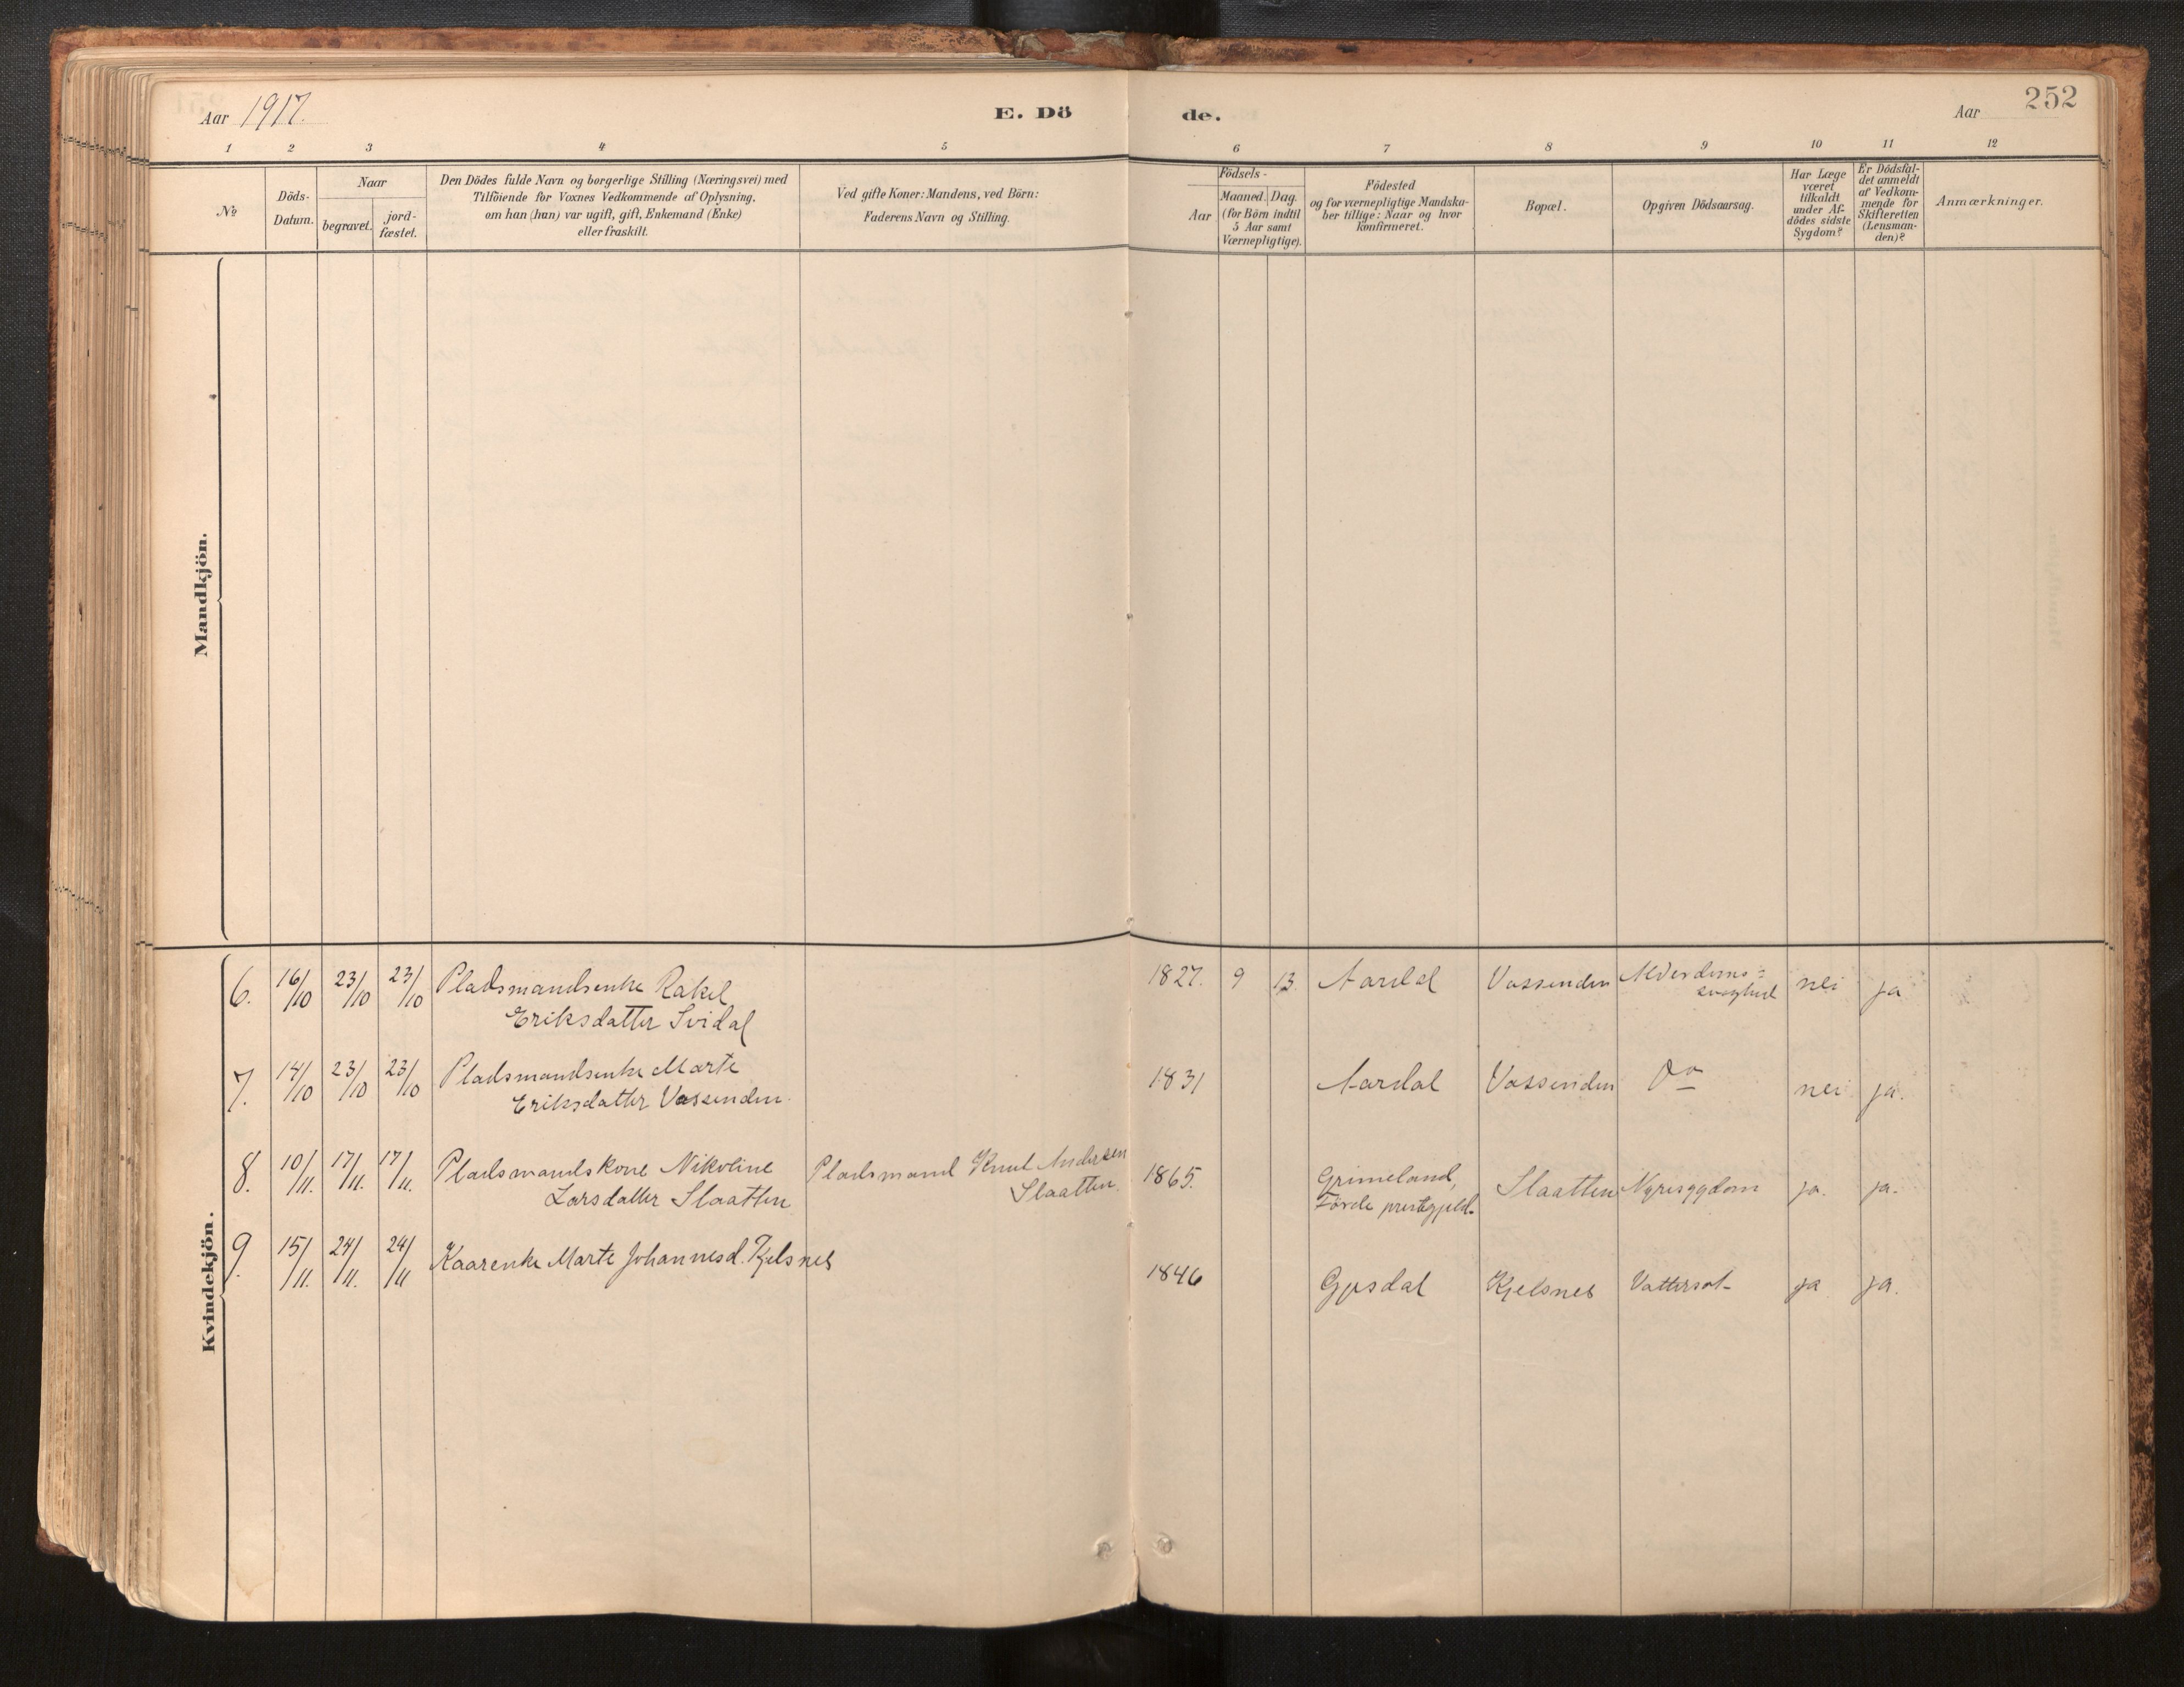 Aar 1917.
E. Dö
de.
Aar
252
1 2 3 4 5 6 7 8 9 10 11 12
No
Döds-
Datum.
Naar
begravet.
jord-
fæstet.
Den Dödes fulde Navn og borgerlige Stilling (Næringsvei) med
Tilföiende for Voxnes Vedkommende af Oplysning,
om han (hun) var ugift, gift, Enkemand (Enke)
eller fraskilt.
Ved gifte Koner: Mandens, ved Börn:
Faderens Navn og Stilling.
Födsels-
Aar
Maaned. Dag.
(for Börn indtil
5 Aar samt
Værnepligtige).
Födested
og for værnepligtige Mandska-
ber tillige: Naar og hvor
konfirmeret.
Bopæl.
Opgiven Dödsaarsag.
Har Læge
været
tilkaldt
under Af-
dödes sidste
Sygdom?
Er Dödsfal-
det anmeldt
af Vedkom-
mende for
Skifteretten
(Lensman-
den)?
Anmærkninger.
Mandkjön.
Kvindekjön.
6. 16/10 23/10 23/10 Pladsmandsenke Rakel 1827. 9 13 Aardal Vassenden Alderdoms= nei ja
Eriksdatter Svidal svaghed
7. 14/10 23/10 23/10 Pladsmandsenke Marte 1831 Aardal Vassenden Do nei ja.
Eriksdatter Vassenden.
8. 10/11. 17/11. 17/11. Pladsmandskone Nikoline Pladsmand Knut Andersen 1865. Grimeland, Slaatten Nyresygdom ja. ja.
Larsdatter Slaatten Slaatten. Förde prestegjeld.
9. 15/11. 24/11. 24/11 Kaarenke Marte Johannesd. Kjelsnes 1846 Gjesdal Kjelsnes Vattersot ja ja.